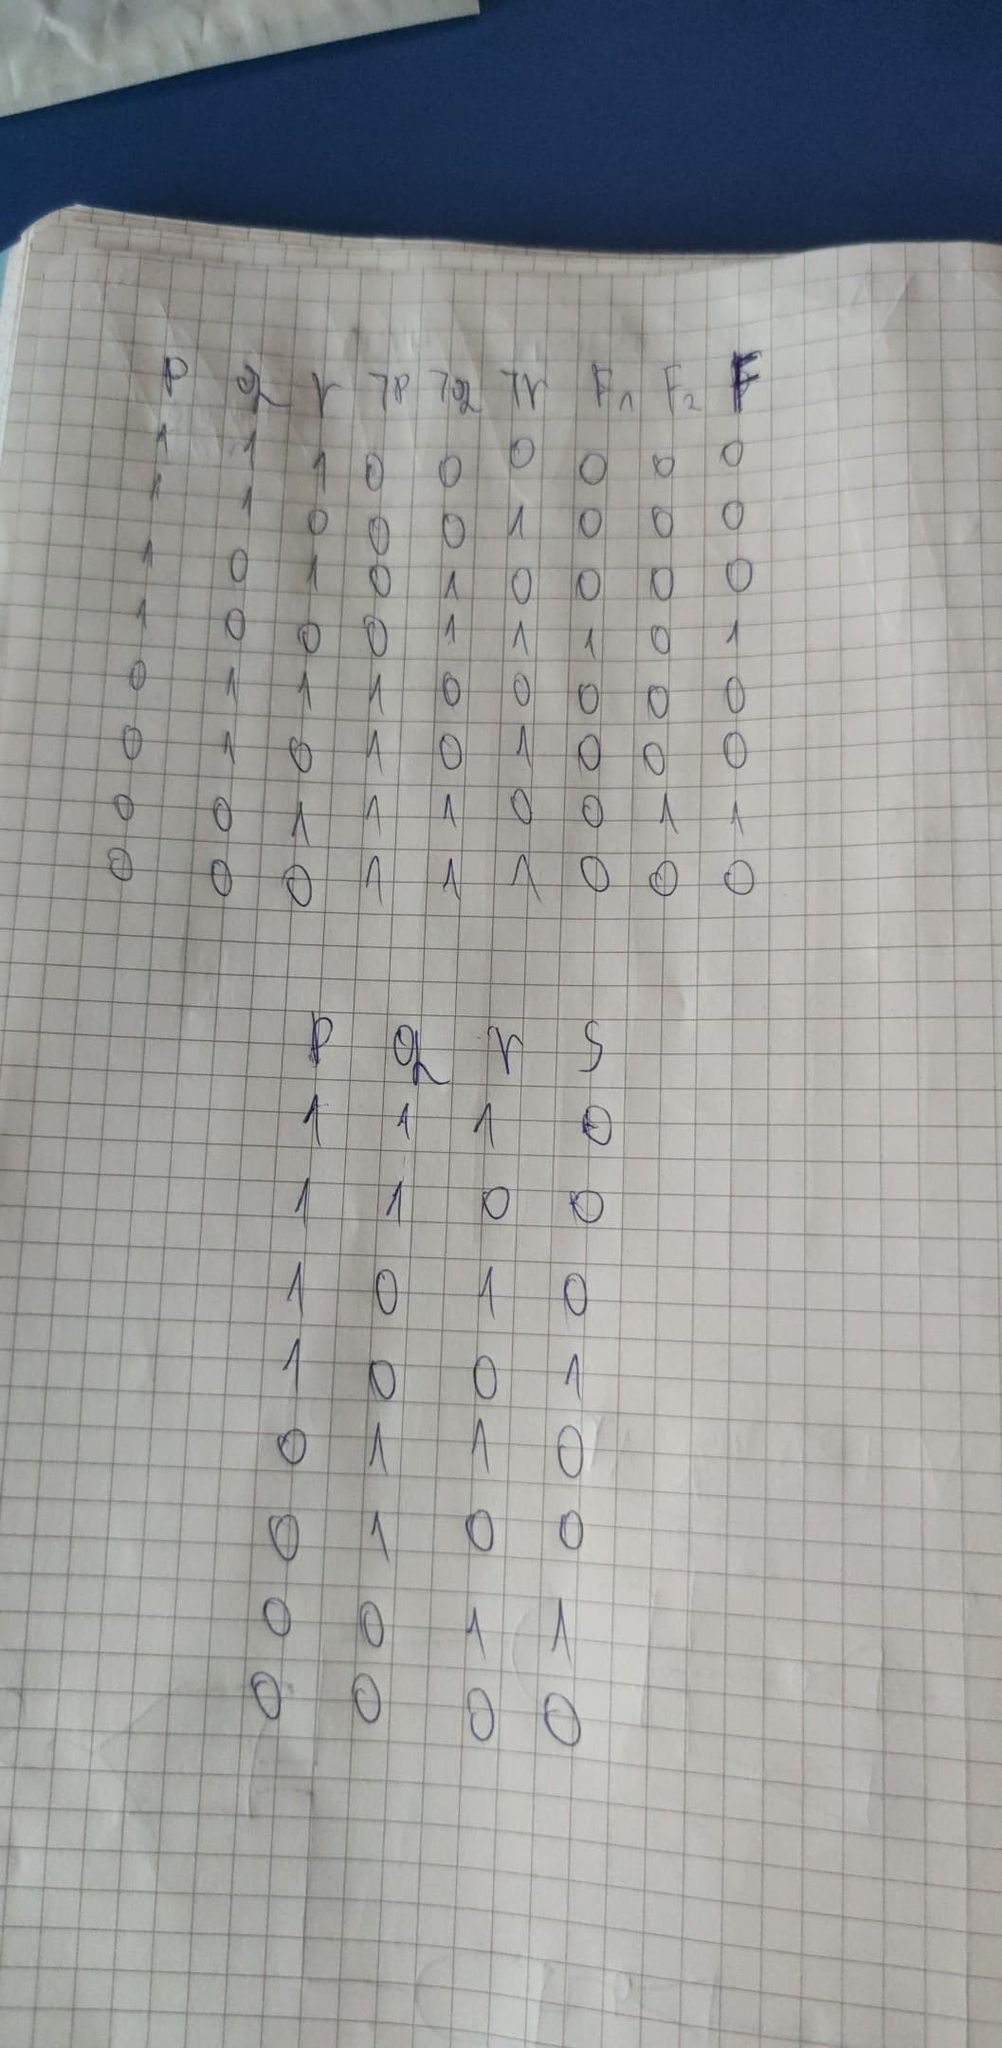 P q r ㄱP ㄱq ㄱr F₁ F₂ F
1 1 1 0 0 0 0 0 0
1 1 0 0 0 1 0 0 0
1 0 1 0 1 0 0 0 0
1 0 0 0 1 1 1 0 1
0 1 1 1 0 0 0 0 0
0 1 0 1 0 1 0 0 0
0 0 1 1 1 0 0 1 1
0 0 0 1 1 1 0 0 0
P q r S
1 1 1 0
1 1 0 0
1 0 1 0
1 0 0 1
0 1 1 0
0 1 0 0
0 0 1 1
0 0 0 0